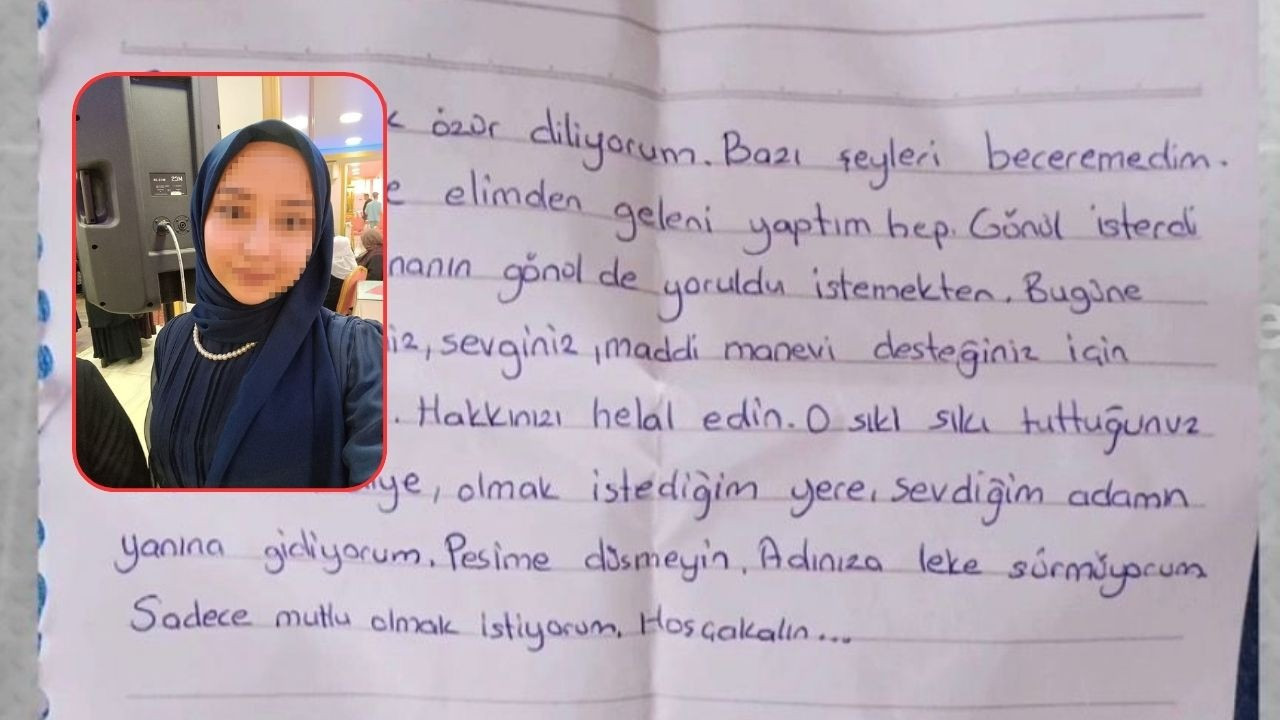 özür diliyorum. Bazı şeyleri beceremedim.
elimden geleni yaptım hep. Gönül isterdi
gönül de yoruldu istemekten. Bugüne
sevginiz, maddi manevi desteğiniz için
. Hakkınızı helal edin. O sıkı sıkı tuttuğunuz
olmak istediğim yere, sevdiğim adamn
yanına gidiyorum. Pesime düsmeyin. Adınıza leke sürmüyorum
Sadece mutlu olmak istiyorum. Hosçakalın...